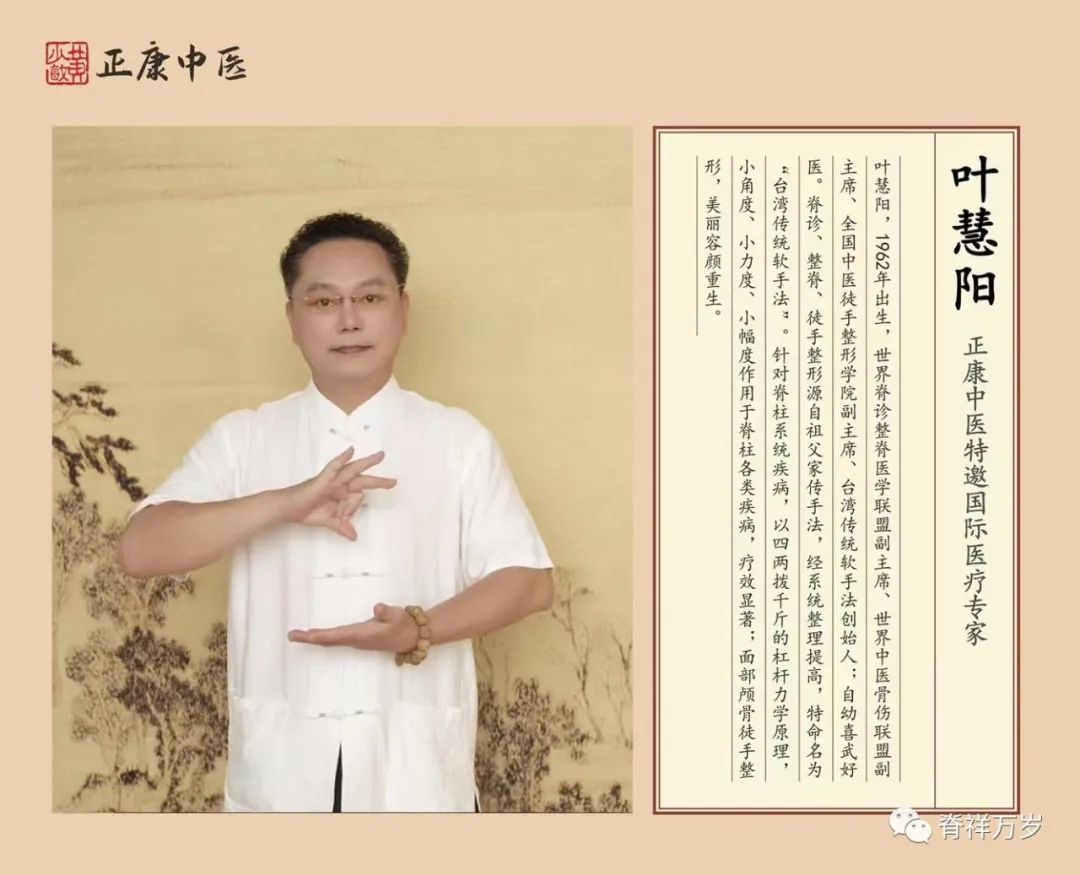 正康中医
叶慧阳 正康中医特邀国际医疗专家
叶慧阳，1962年出生，世界脊诊整脊医学联盟副主席、世界中医骨伤联盟副
主席、全国中医徒手整形学院副主席、台湾传统软手法创始人；自幼喜武好
医。脊诊、整脊、徒手整形源自祖父家传手法，经系统整理提高，特命名为
“台湾传统软手法”。针对脊柱系统疾病，以四两拨千斤的杠杆力学原理，
小角度、小力度、小幅度作用于脊柱各类疾病，疗效显著；面部颅骨徒手整
形，美丽容颜重生。
脊祥万岁